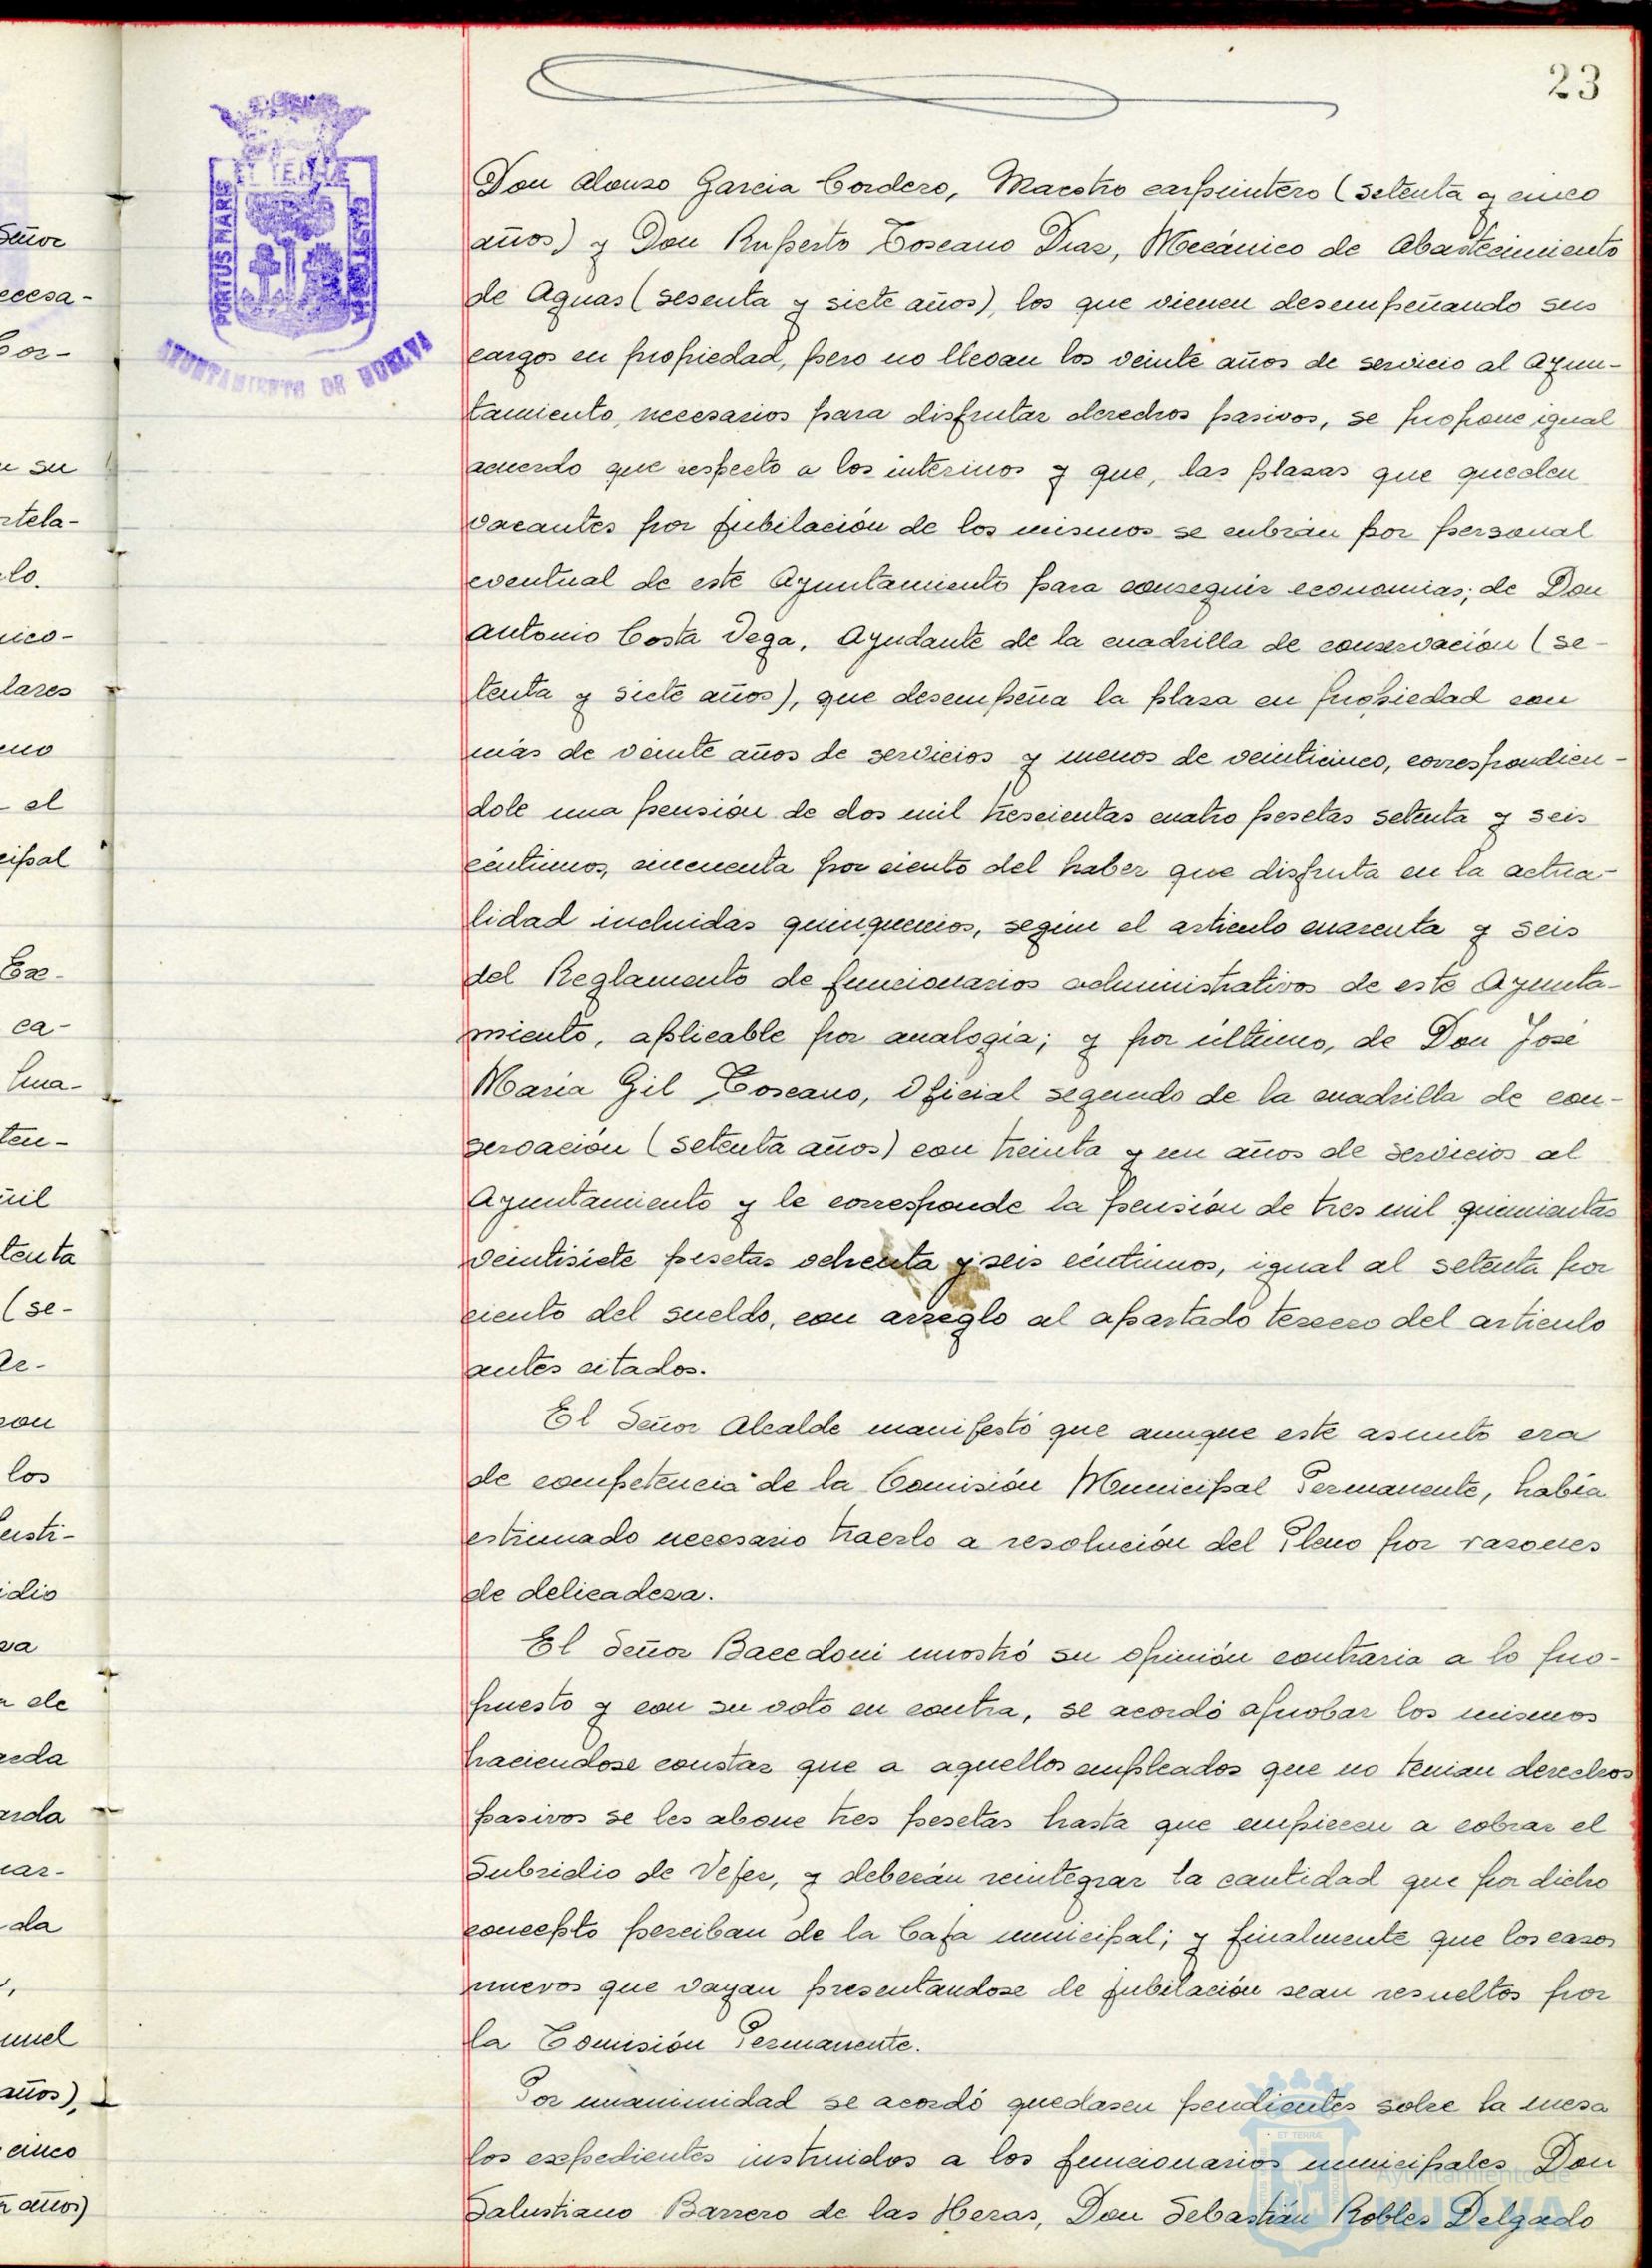 23
ET TERRÆ
PORTUS MARIS
AYUNTAMIENTO DE HUELVA
Don Alonso Garcia Cordero, Maestro carpintero (setenta y cinco
años) y Don Ruperto Toscano Diaz, Mecánico de Abastecimiento
de Aguas (sesenta y siete años), los que vienen desempeñando sus
cargos en propiedad, pero no llevan los veinte años de servicio al Ayun-
tamiento, necesarios para disfrutar derechos pasivos, se propone igual
acuerdo que respecto a los interinos y que, las plazas que queden
vacantes por jubilación de los mismos se cubrán por personal
eventual de este Ayuntamiento para conseguir economias; de Don
Antonio Costa Vega, Ayudante de la cuadrilla de conservación (se-
tenta y siete años), que desempeña la plaza en propiedad con
más de veinte años de servicios y menos de veinticinco, correspondien-
dole una pensión de dos mil trescientas cuatro pesetas setenta y seis
céntimos, cincuenta por ciento del haber que disfruta en la actua-
lidad incluidas quinquenios, según el articulo cuarenta y seis
del Reglamento de funcionarios administrativos de este Ayunta-
miento, aplicable por analogía; y por último, de Don José
María Gil Toscano, Oficial segundo de la cuadrilla de con-
servación (setenta años) con treinta y un años de servicios al
Ayuntamiento y le corresponde la pensión de tres mil quinientas
veintisiete pesetas ochenta y seis céntimos, igual al setenta por
ciento del sueldo, con arreglo al apartado tercero del articulo
antes citados.
El Señor Alcalde manifestó que aunque este asunto era
de competencia de la Comisión Municipal Permanente, había
estimado necesario traerlo a resolución del Pleno por razones
de delicadeza.
El Señor Bacedoni mostró su opinión contraria a lo pro-
puesto y con su voto en contra, se acordó aprobar los mismos
haciendose constar que a aquellos empleados que no tenian derechos
pasivos se les abone tres pesetas hasta que empiecen a cobrar el
Subsidio de Vejer, y deberán reintegrar la cantidad que por dicho
concepto perciban de la Caja municipal; y finalmente que los casos
nuevos que vayan presentandose de jubilación sean resueltos por
la Comisión Permanente.
Por unanimidad se acordó quedasen pendientes sobre la mesa
los expedientes instruidos a los funcionarios municipales Don
Salustiano Barrero de las Heras, Don Sebastián Robles Delgado
Ayuntamiento de
HUELVA